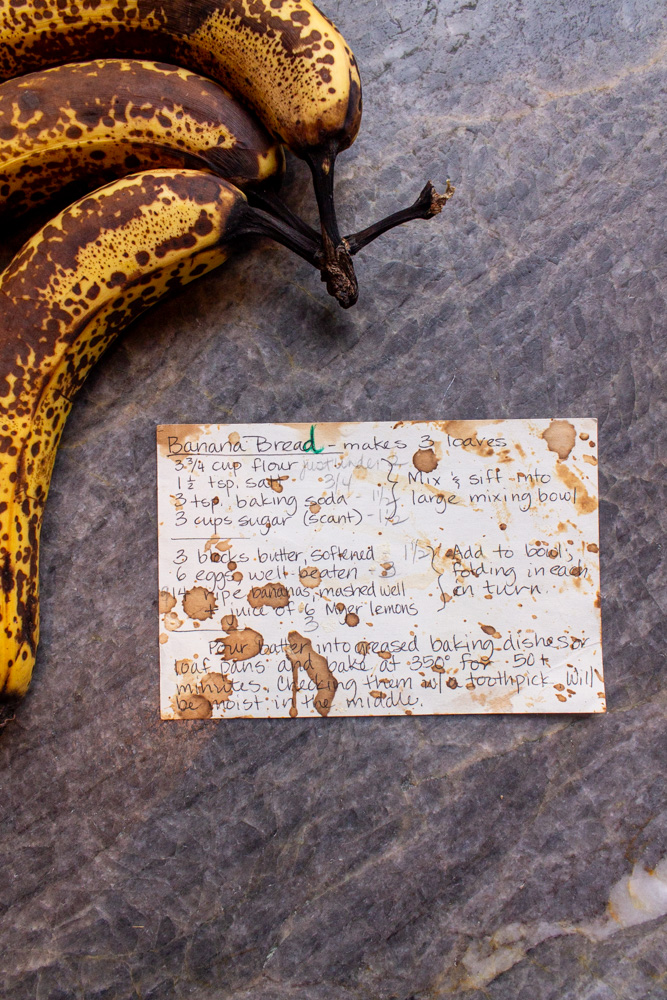 Banana Bread - makes 3 loaves
3 3/4 cup flour just under 2
1 1/2 tsp. salt 3/4 Mix & sift into
3 tsp. baking soda - 1 1/2 large mixing bowl
3 cups sugar (scant) - 1 1/2
3 blocks butter, softened 1 1/2 Add to bowl,
6 eggs, well-beaten - 3 folding in each
ripe bananas, mashed well in turn
+ juice of 6 Myer lemons
3
Pour bater into greased baking dishes or
loaf pans and bake at 350° for 50+
minutes. Checking them w/ a toothpick. Will
be moist in the middle.